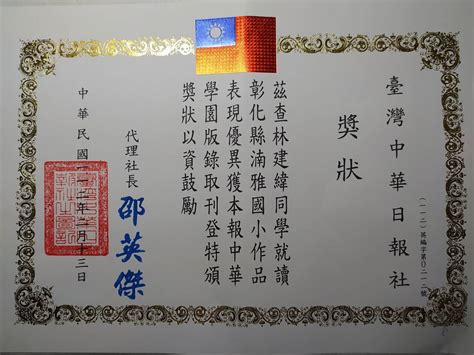 臺灣中華日報社
獎狀
(一一二)英編字第〇二一二號
茲查林建緯同學就讀
彰化縣湳雅國小作品
表現優異獲本報中華
學園版錄取刊登特頒
獎狀以資鼓勵
代理社長
邵英傑
中華民國一一二年二月十三日